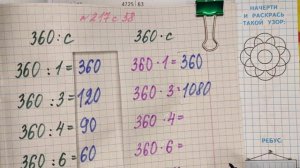 4725 63
№217 с 58
360:с 360·с
360:1=360 360·1=360
360:3=120 360·3=1080
360:4=90 360·4=
360:6=60 360·6=
НАЧЕРТИ
И РАСКРАСЬ
ТАКОЙ УЗОР:
РЕБУС: